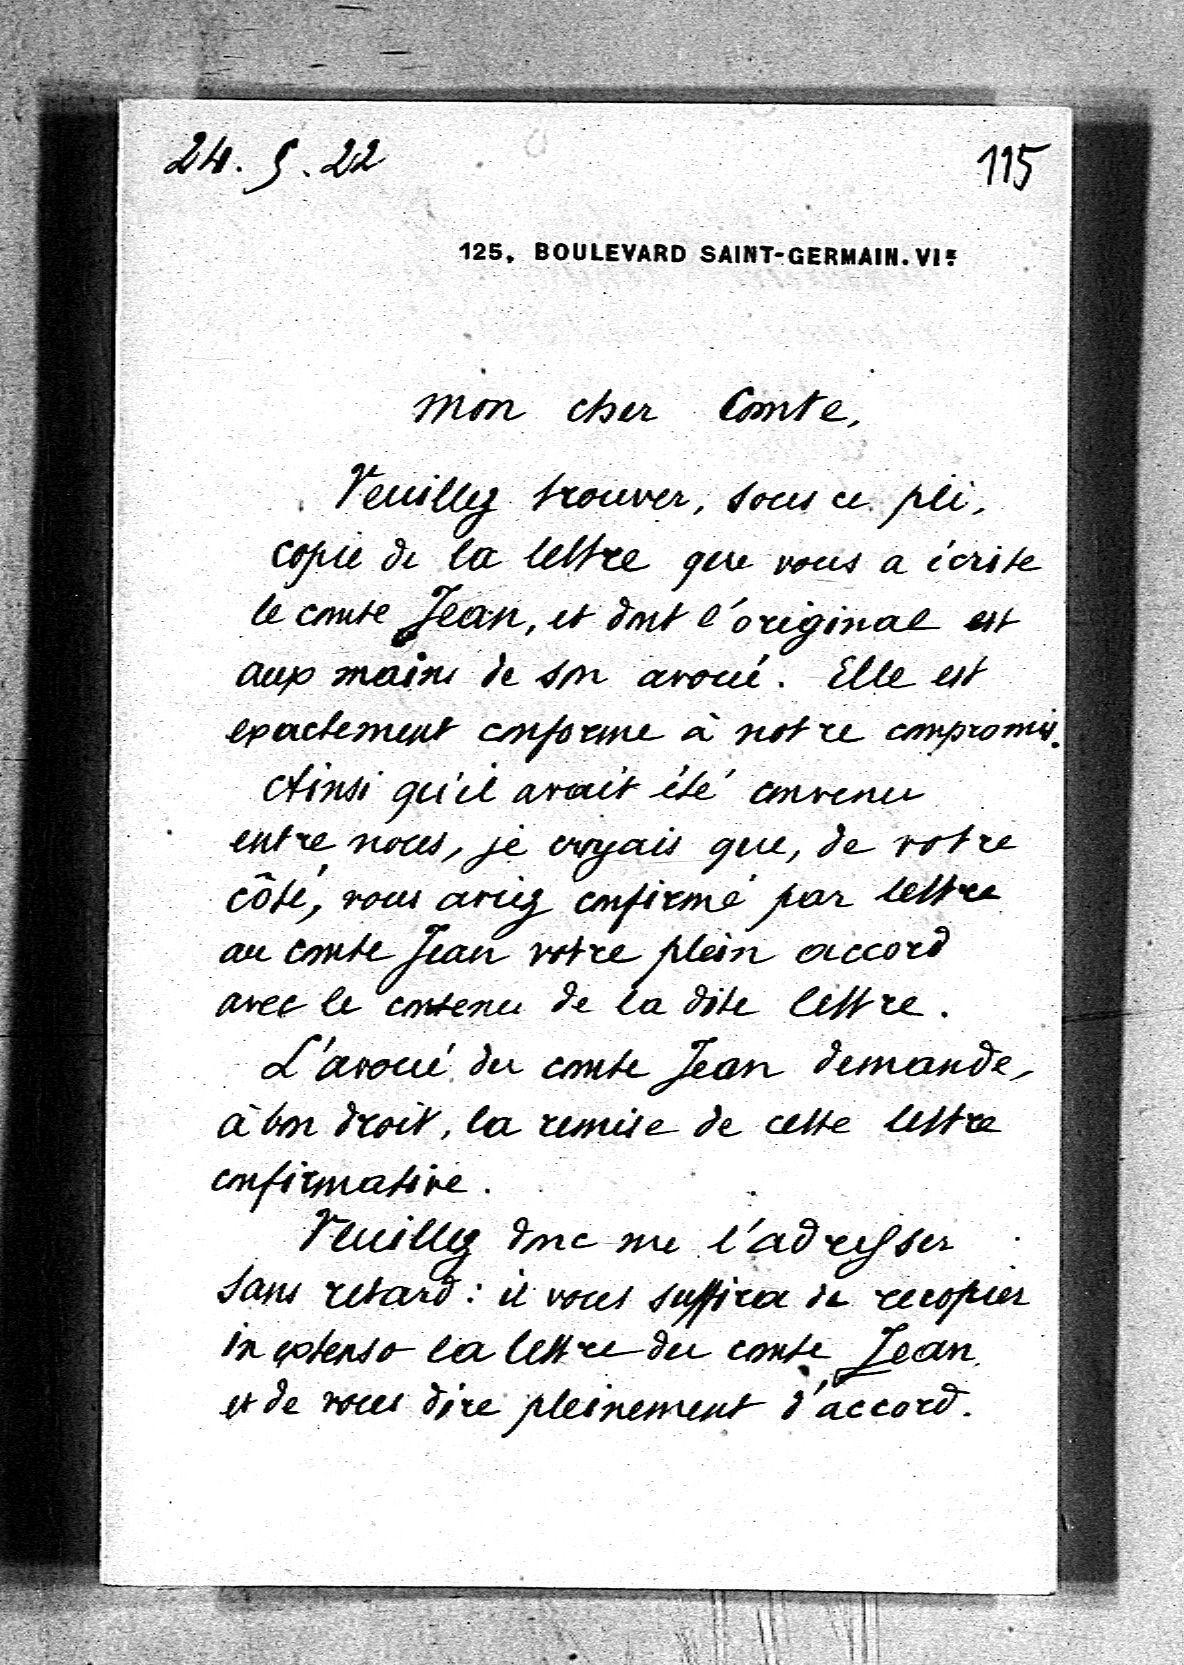 24. 5. 22
115
125, BOULEVARD SAINT-GERMAIN. VIE
Mon cher Comte,
Veuillez trouver, sous ce pli,
copie de la lettre que vous a écrite
le comte Jean, et dont l'original est
aux mains de son avoué. Elle est
exactement conforme à notre compromis.
Ainsi qu'il avait été convenu
entre nous, je croyais que, de votre
côté, vous aviez confirmé par lettre
au comte Jean votre plein accord
avec le contenu de la dite lettre.
L'avoué du comte Jean demande,
à bon droit, la remise de cette lettre
confirmative.
Veuillez donc me l'adresser
sans retard : il vous suffira de recopier
in extenso la lettre du comte Jean
et de vous dire pleinement d'accord.